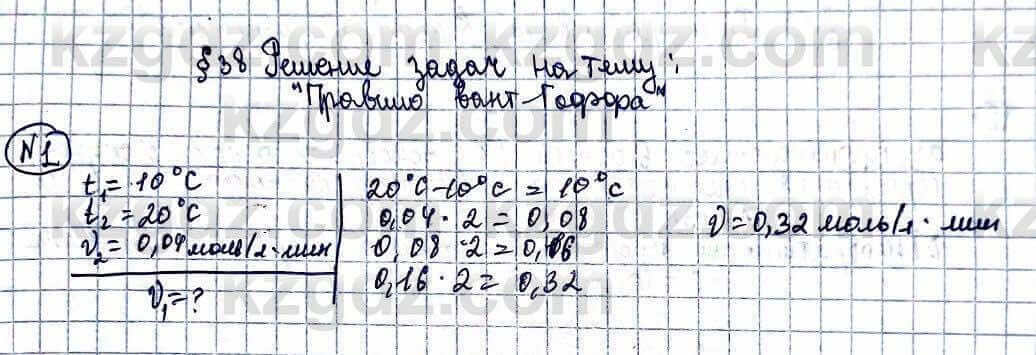 § 38 Решение задач на тему:
"Правило Вант-Гоффора"
N1
t₁= 10°C
t₂ = 20°C
υ₂ = 0,04 моль/л·мин
υ₁ = ?
20°C-10°C = 10°C
0,04 · 2 = 0,08
0,08 · 2 = 0,16
0,16 · 2 = 0,32
υ = 0,32 моль/л · мин